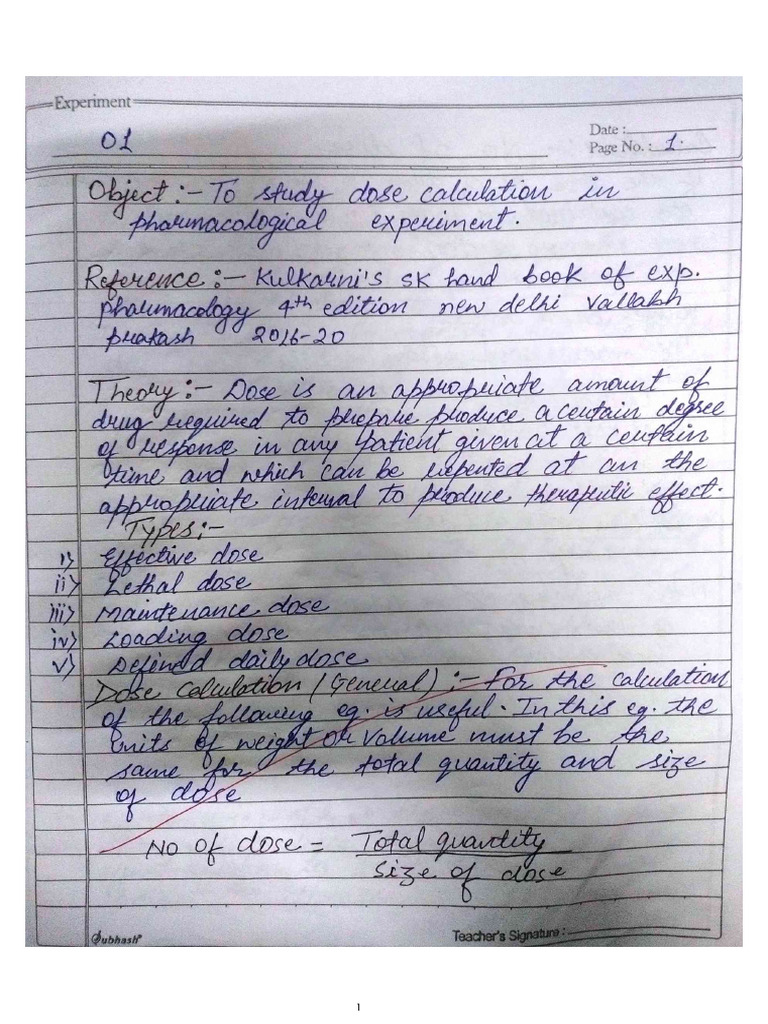 Experiment
01
Date :
Page No. : 1.
Object :- To study dose calculation in
pharmacological experiment.
Reference :- Kulkarni's SK hand book of exp.
pharmacology 4th edition new delhi Vallabh
prakash 2016-20
Theory :- Dose is an appropriate amount of
drug required to prepare produce a certain degree
of response in any patient given at a certain
time and which can be repented at an the
appropriate interval to produce therapeutic effect.
Types :-
i) Effective dose
ii) Lethal dose
iii) Maintenance dose
iv) Loading dose
v) Defined daily dose
Dose Calculation (General) :- For the calculation
of the following eg. is useful. In this eg. the
units of weight or volume must be the
same for the total quantity and size
of dose
No of dose = Total quantity
Size of dose
Subhash
Teacher's Signature :
1